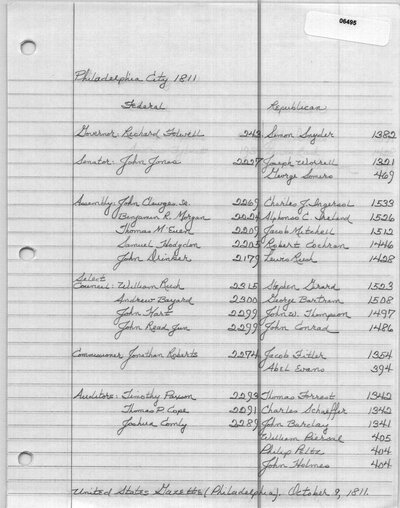 06495
Philadelphia City 1811
Federal Republican
Governor: Richard Folwell 243 Simon Snyder 1382
Senator: John Jones 2227 Joseph Worrell 1321
George Somers 469
Assembly: John Clawges Jr. 2269 Charles J. Ingersol 1533
Benjamin R. Morgan 2224 Alphonso C. Ireland 1526
Thomas M. Euen 2209 Jacob Mitchell 1512
Samuel Hodgdon 2205 Robert Cochran 1446
John Drinker 2179 Lewis Rush 1428
Select
Council: William Rush 2315 Stephen Girard 1523
Andrew Bayard 2300 George Bartram 1508
John Hart 2299 John W. Thompson 1497
John Read Jun 2299 John Conrad 1486
Commissioner Jonathan Roberts 2274 Jacob Fitler 1354
Abel Evans 394
Auditors: Timothy Paxson 2293 Thomas Forrest 1342
Thomas P. Cope 2291 Charles Schaffer 1342
Joshua Comly 2289 John Barclay 1341
William 405
Philip Peltz 404
John Holmes 404
United States Gazette (Philadelphia). October 9, 1811.